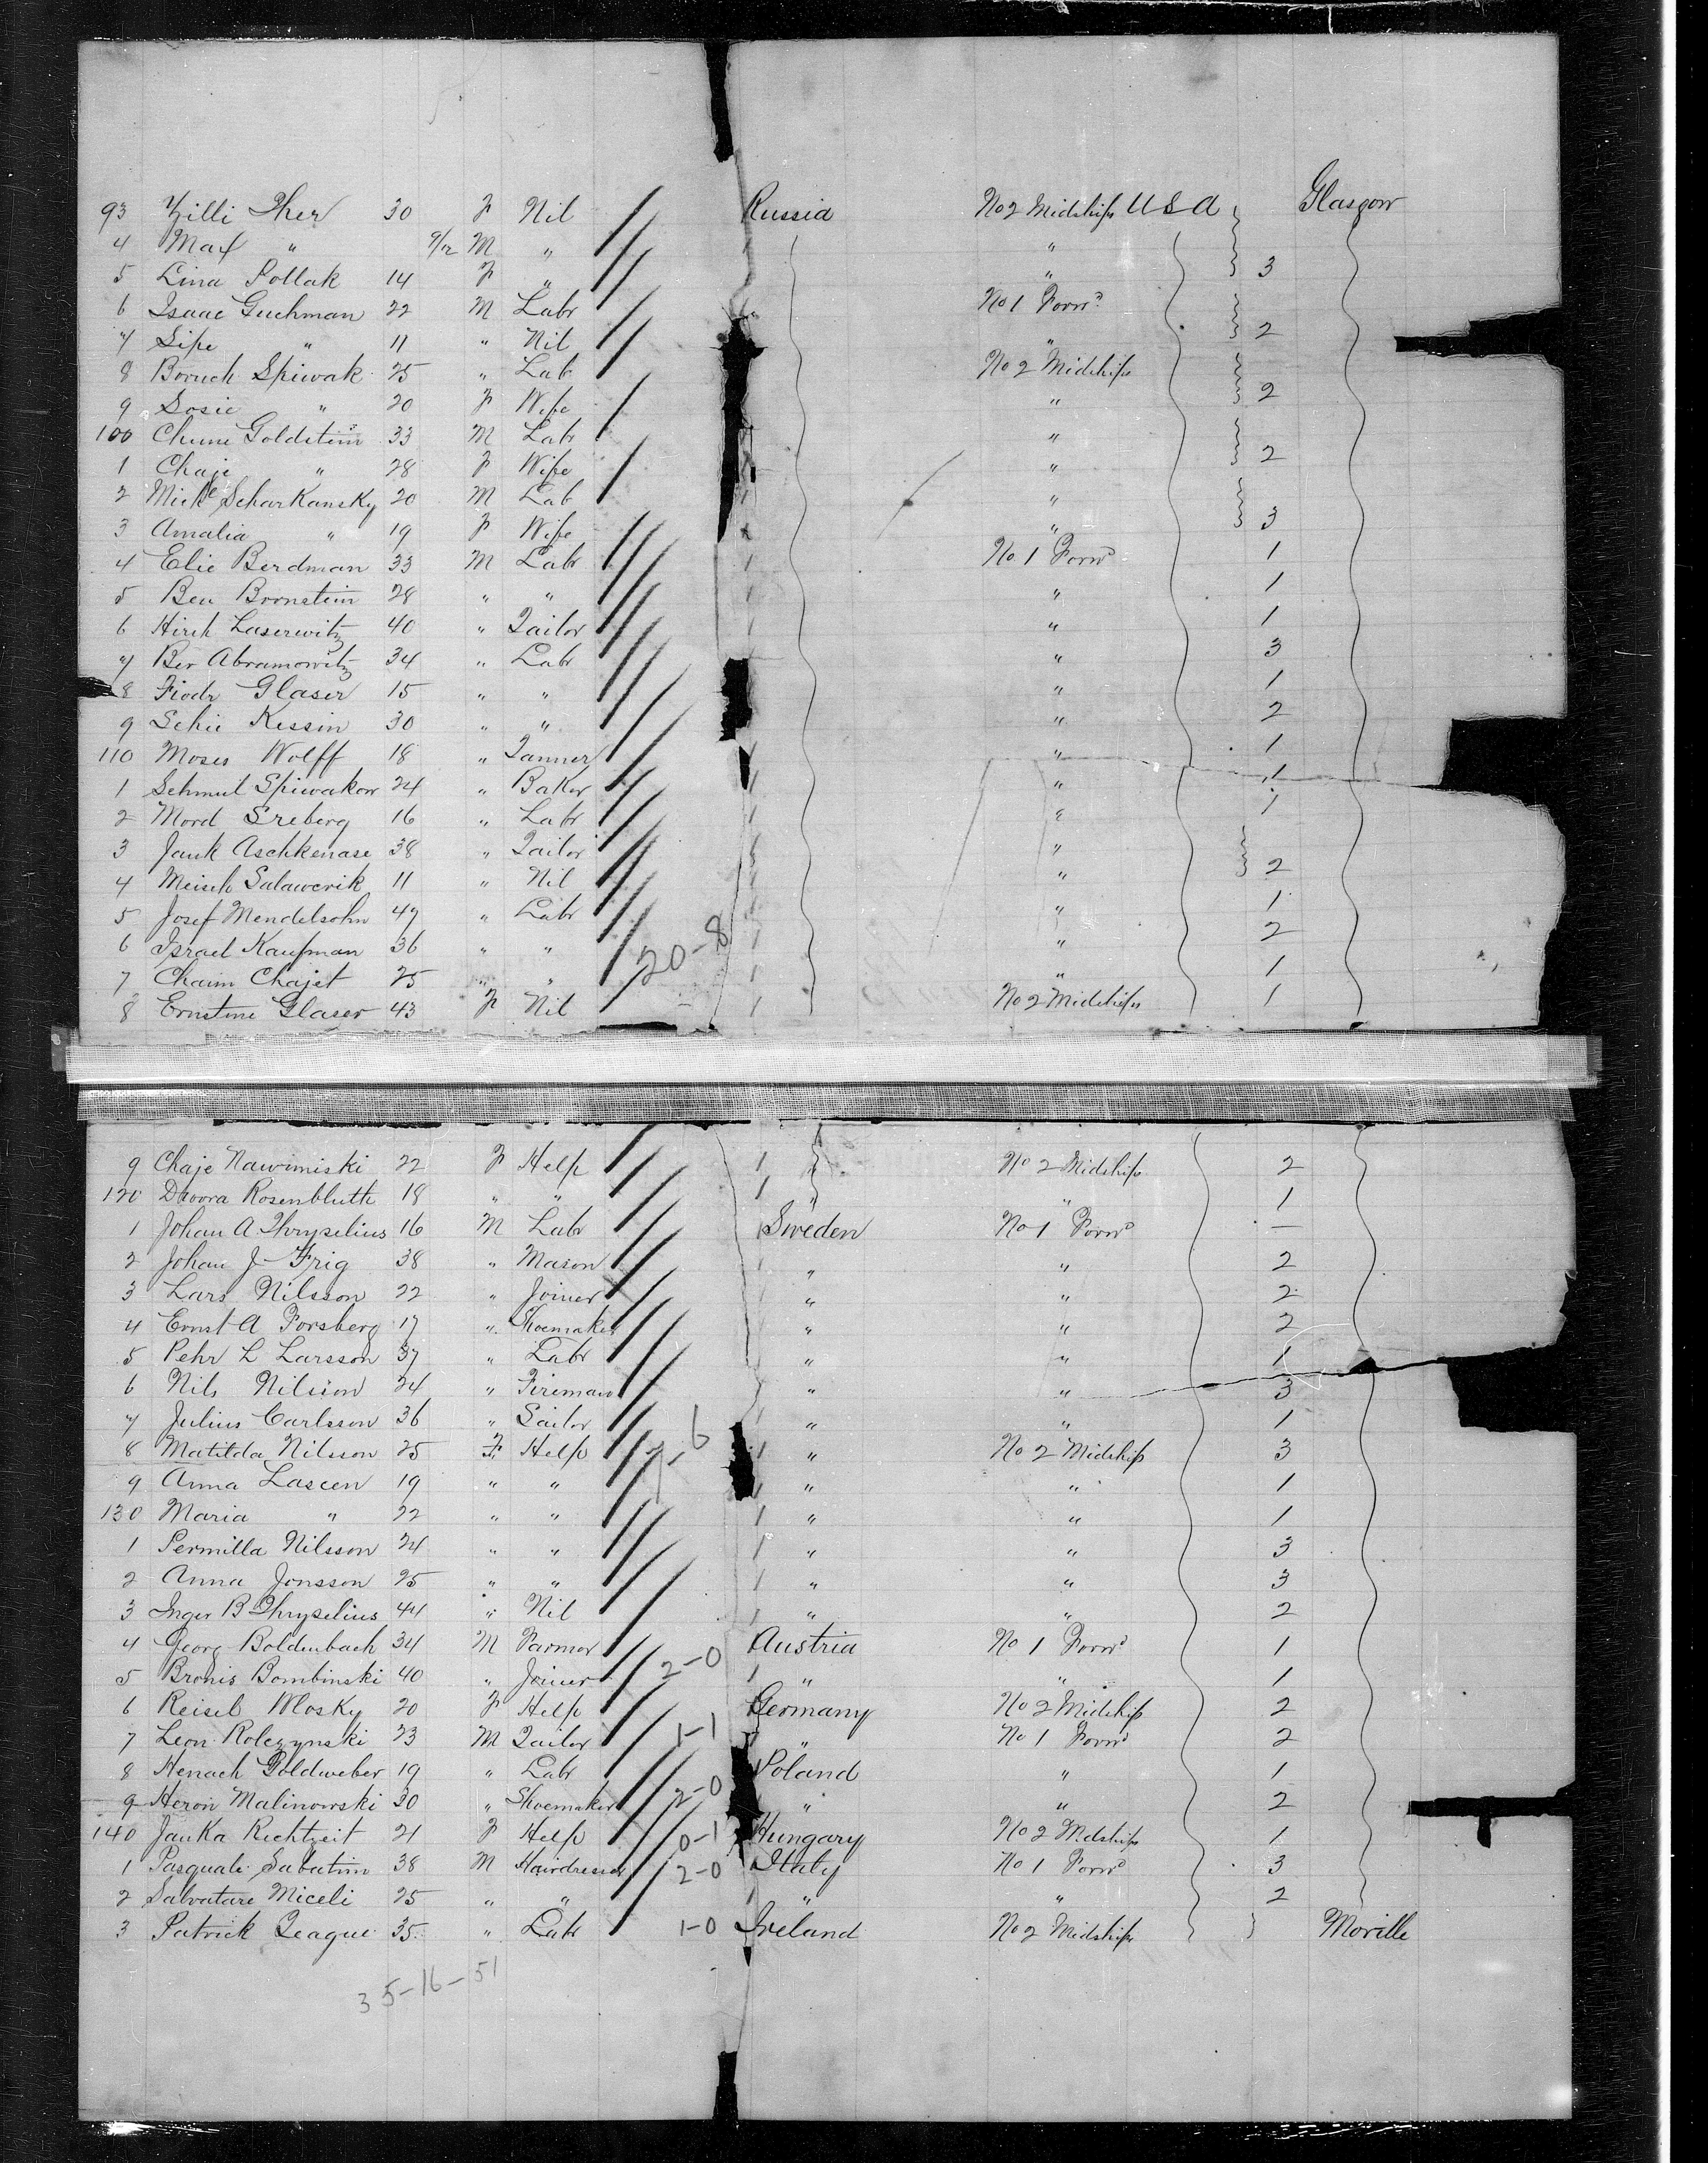 93 Zilli Ther 30 F Nil Russia No 2 Midships U S A Glasgow
4 Max " 9/12 M " "
5 Lina Pollak 14 F " " 3
6 Isaac Guchman 22 M Labr No 1 Forwd
7 Sipe " 11 " Nil " 2
8 Boruch Spiwak 25 " Lab No 2 Midships
9 Sosie " 20 F Wife " 2
100 Chune Goldstein 33 M Labr "
1 Chaje " 28 F Wife " 2
2 Scharkansky 20 M Lab "
3 Amalia " 19 F Wife " 3
4 Elie Berdman 33 M Labr No 1 Forwd 1
5 Ben Bornstein 28 " " " 1
6 Hirch Laserewitz 40 " Tailor " 1
7 Ber Abramowitz 34 " Labr " 3
8 Fiodr Glaser 15 " " " 1
9 Schie Kessin 30 " " " 2
110 Moses Wolff 18 " Tanner " 1
1 Schmul Spiwakow 24 " Baker " 1
2 Mord Sreberg 16 " Labr " 1
3 Jank Aschkenase 38 " Tailor "
4 Meisch Salawerik 11 " Nil " 2
5 Josef Mendelsohn 47 " Labr " 1
6 Israel Kaufman 36 " " " 2
7 Chaim Chajet 25 " " 20-8 " 1
8 Ernstine Glaser 43 F Nil No 2 Midships 1
9 Chaje Nawimiski 22 F Help " No 2 Midships 2
120 Dwora Rosenbluth 18 " " " " 1
1 Johan A. Thryselius 16 M Labr Sweden No 1 Forwd —
2 Johan J Frig 38 " Mason " " 2
3 Lars Nilsson 22 " Joiner " " 2
4 Ernst A Forsberg 17 " Shoemaker " " 2
5 Pehr L Larsson 37 " Labr " " 1
6 Nils Nilsson 24 " Fireman " " 3
7 Julius Carlsson 36 " Sailor " " 1
8 Matilda Nilsson 25 F Help 7-6 " No 2 Midships 3
9 Anna Lascen 19 " " " " 1
130 Maria " 22 " " " " 1
1 Permilla Nilsson 24 " " " " 3
2 Anna Jonsson 25 " " " " 3
3 Inger B Thryselius 44 " Nil " " 2
4 Georg Boldenbach 34 M Farmer Austria No 1 Forwd 1
5 Bronis Bombinski 40 " Joiner 2-0 " " 1
6 Reisel Mosky 20 F Help Germany No 2 Midships 2
7 Leon Rolczynski 23 M Tailor 1-1 " No 1 Forwd 2
8 Henach Goldweber 19 " Labr Poland " 1
9 Heron Malinowski 30 " Shoemaker 2-0 " " 2
140 Janka Rechtzeit 21 F Help 0-1 Hungary No 2 Midships 1
1 Pasquale Sabatini 38 M Hairdresser 2-0 Italy No 1 Forwd 3
2 Salvatare Miceli 25 " " " " 2
3 Patrick Teague 35 " Labr 1-0 Ireland No 2 Midships Moville
35-16-51